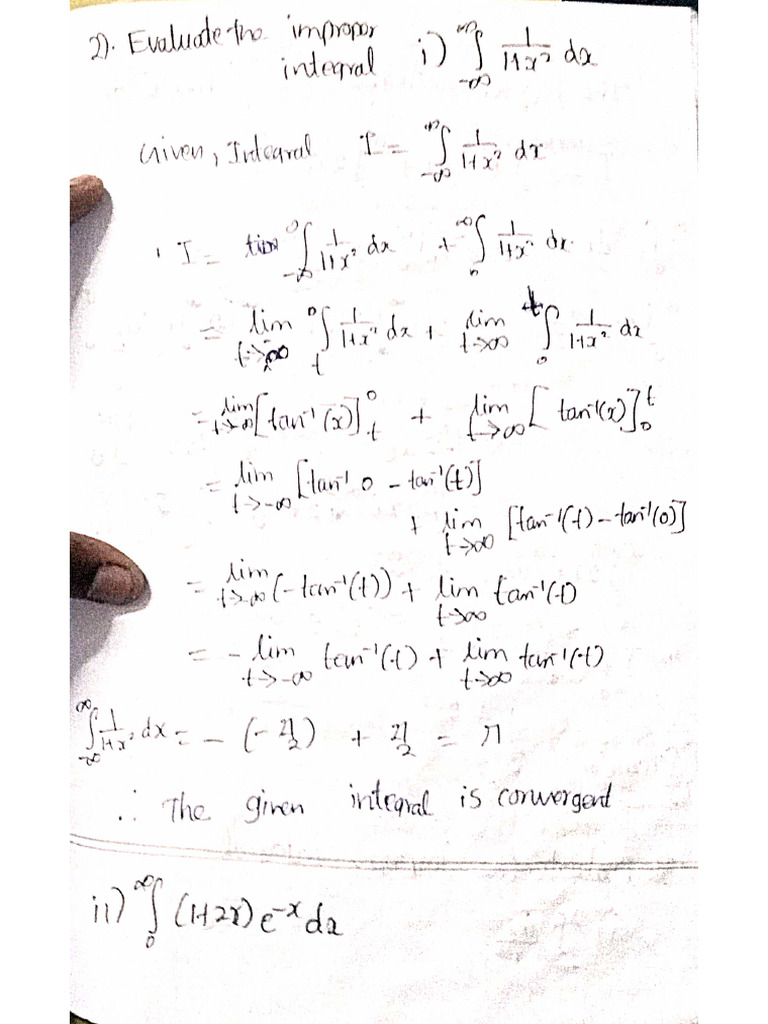 2). Evaluate the impropor
integral i) ∫_{-∞}^{∞} 1/(1+x²) dx
Given, Integral I = ∫_{-∞}^{∞} 1/(1+x²) dx
I = ∫_{-∞}^{0} 1/(1+x²) dx + ∫_{0}^{∞} 1/(1+x²) dx
= lim_{t→-∞} ∫_{t}^{0} 1/(1+x²) dx + lim_{t→∞} ∫_{0}^{t} 1/(1+x²) dx
= lim_{t→-∞} [tan⁻¹(x)]_{t}^{0} + lim_{t→∞} [tan⁻¹(x)]_{0}^{t}
= lim_{t→-∞} [tan⁻¹ 0 - tan⁻¹(t)]
+ lim_{t→∞} [tan⁻¹(t) - tan⁻¹(0)]
= lim_{t→-∞} (-tan⁻¹(t)) + lim_{t→∞} tan⁻¹(t)
= - lim_{t→-∞} tan⁻¹(t) + lim_{t→∞} tan⁻¹(t)
∫_{-∞}^{∞} 1/(1+x²) dx = - (-π/2) + π/2 = π
∴ The given integral is convergent
ii) ∫_{0}^{∞} (1+2x) e^{-x} dx